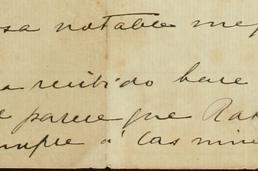 sa notable me
a recibido hace
parece que Ra
mpre á las min